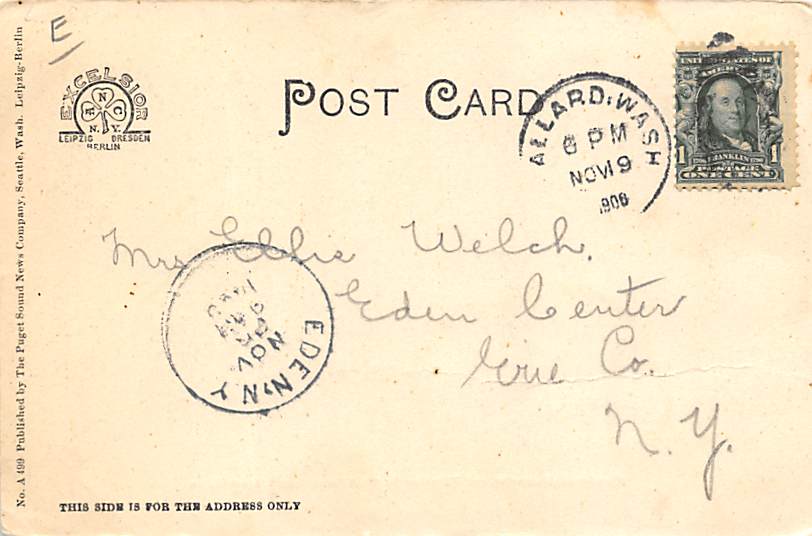 E
EXCELSIOR
E. N. C.
N. Y.
LEIPZIG DRESDEN
BERLIN
POST CARD
ALLARD, WASH
6 PM
NOV 19
1906
UNITED STATES OF
AMERICA
1 FRANKLIN 1
POSTAGE
ONE CENT
Mrs Ellis Welch.
Eden Center
Erie Co.
N. Y.
EDEN, N.Y.
NOV
THIS SIDE IS FOR THE ADDRESS ONLY
No. A 499 Published by The Puget Sound News Company, Seattle, Wash. Leipzig-Berlin